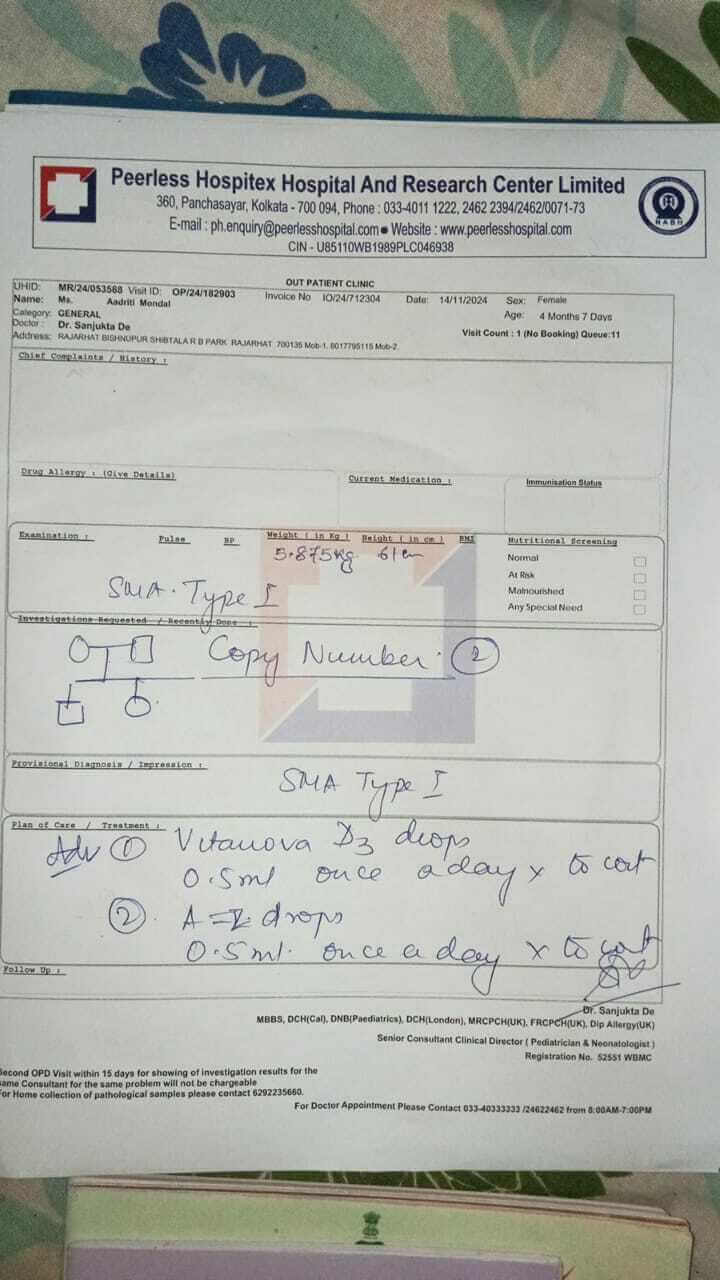 Peerless Hospitex Hospital And Research Center Limited
360, Panchasayar, Kolkata - 700 094, Phone : 033-4011 1222, 2462 2394/2462/0071-73
E-mail : ph.enquiry@peerlesshospital.com ● Website : www.peerlesshospital.com
CIN - U85110WB1989PLC046938
NABH
OUT PATIENT CLINIC
UHID: MR/24/053568 Visit ID: OP/24/182903 Invoice No IO/24/712304 Date: 14/11/2024 Sex: Female
Name: Ms. Aadriti Mondal Age: 4 Months 7 Days
Category: GENERAL
Doctor : Dr. Sanjukta De Visit Count : 1 (No Booking) Queue:11
Address: RAJARHAT BISHNUPUR SHIBTALA R B PARK RAJARHAT 700135 Mob-1. 8017795115 Mob-2.
Chief Complaints / History :
Drug Allergy : (Give Details) Current Medication : Immunisation Status
Examination : Pulse BP Weight ( in Kg ) Height ( in cm ) BMI Nutritional Screening
5.875kg 61cm
Normal
At Risk
Malnourished
Any Special Need
SMA. Type I
Investigations Requested / Recently Done :
Copy Number. 2
Provisional Diagnosis / Impression :
SMA Type I
Plan of Care / Treatment :
Adv 1 Vitanova D3 drops
0.5ml once a day x to cont
2. A-Z drops
0.5ml. once a day x to cont
Follow Up :
Dr. Sanjukta De
MBBS, DCH(Cal), DNB(Paediatrics), DCH(London), MRCPCH(UK), FRCPCH(UK), Dip Allergy(UK)
Senior Consultant Clinical Director ( Pediatrician & Neonatologist )
Registration No. 52551 WBMC
Second OPD Visit within 15 days for showing of investigation results for the
same Consultant for the same problem will not be chargeable
For Home collection of pathological samples please contact 6292235660.
For Doctor Appointment Please Contact 033-40333333 /24622462 from 8:00AM-7:00PM